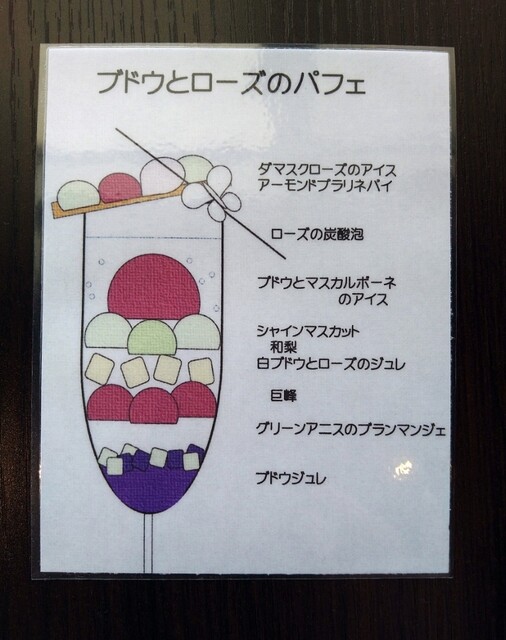 ブドウとローズのパフェ
ダマスクローズのアイス
アーモンドプラリネパイ
ローズの炭酸泡
ブドウとマスカルポーネ
のアイス
シャインマスカット
和梨
白ブドウとローズのジュレ
巨峰
グリーンアニスのブランマンジェ
ブドウジュレ